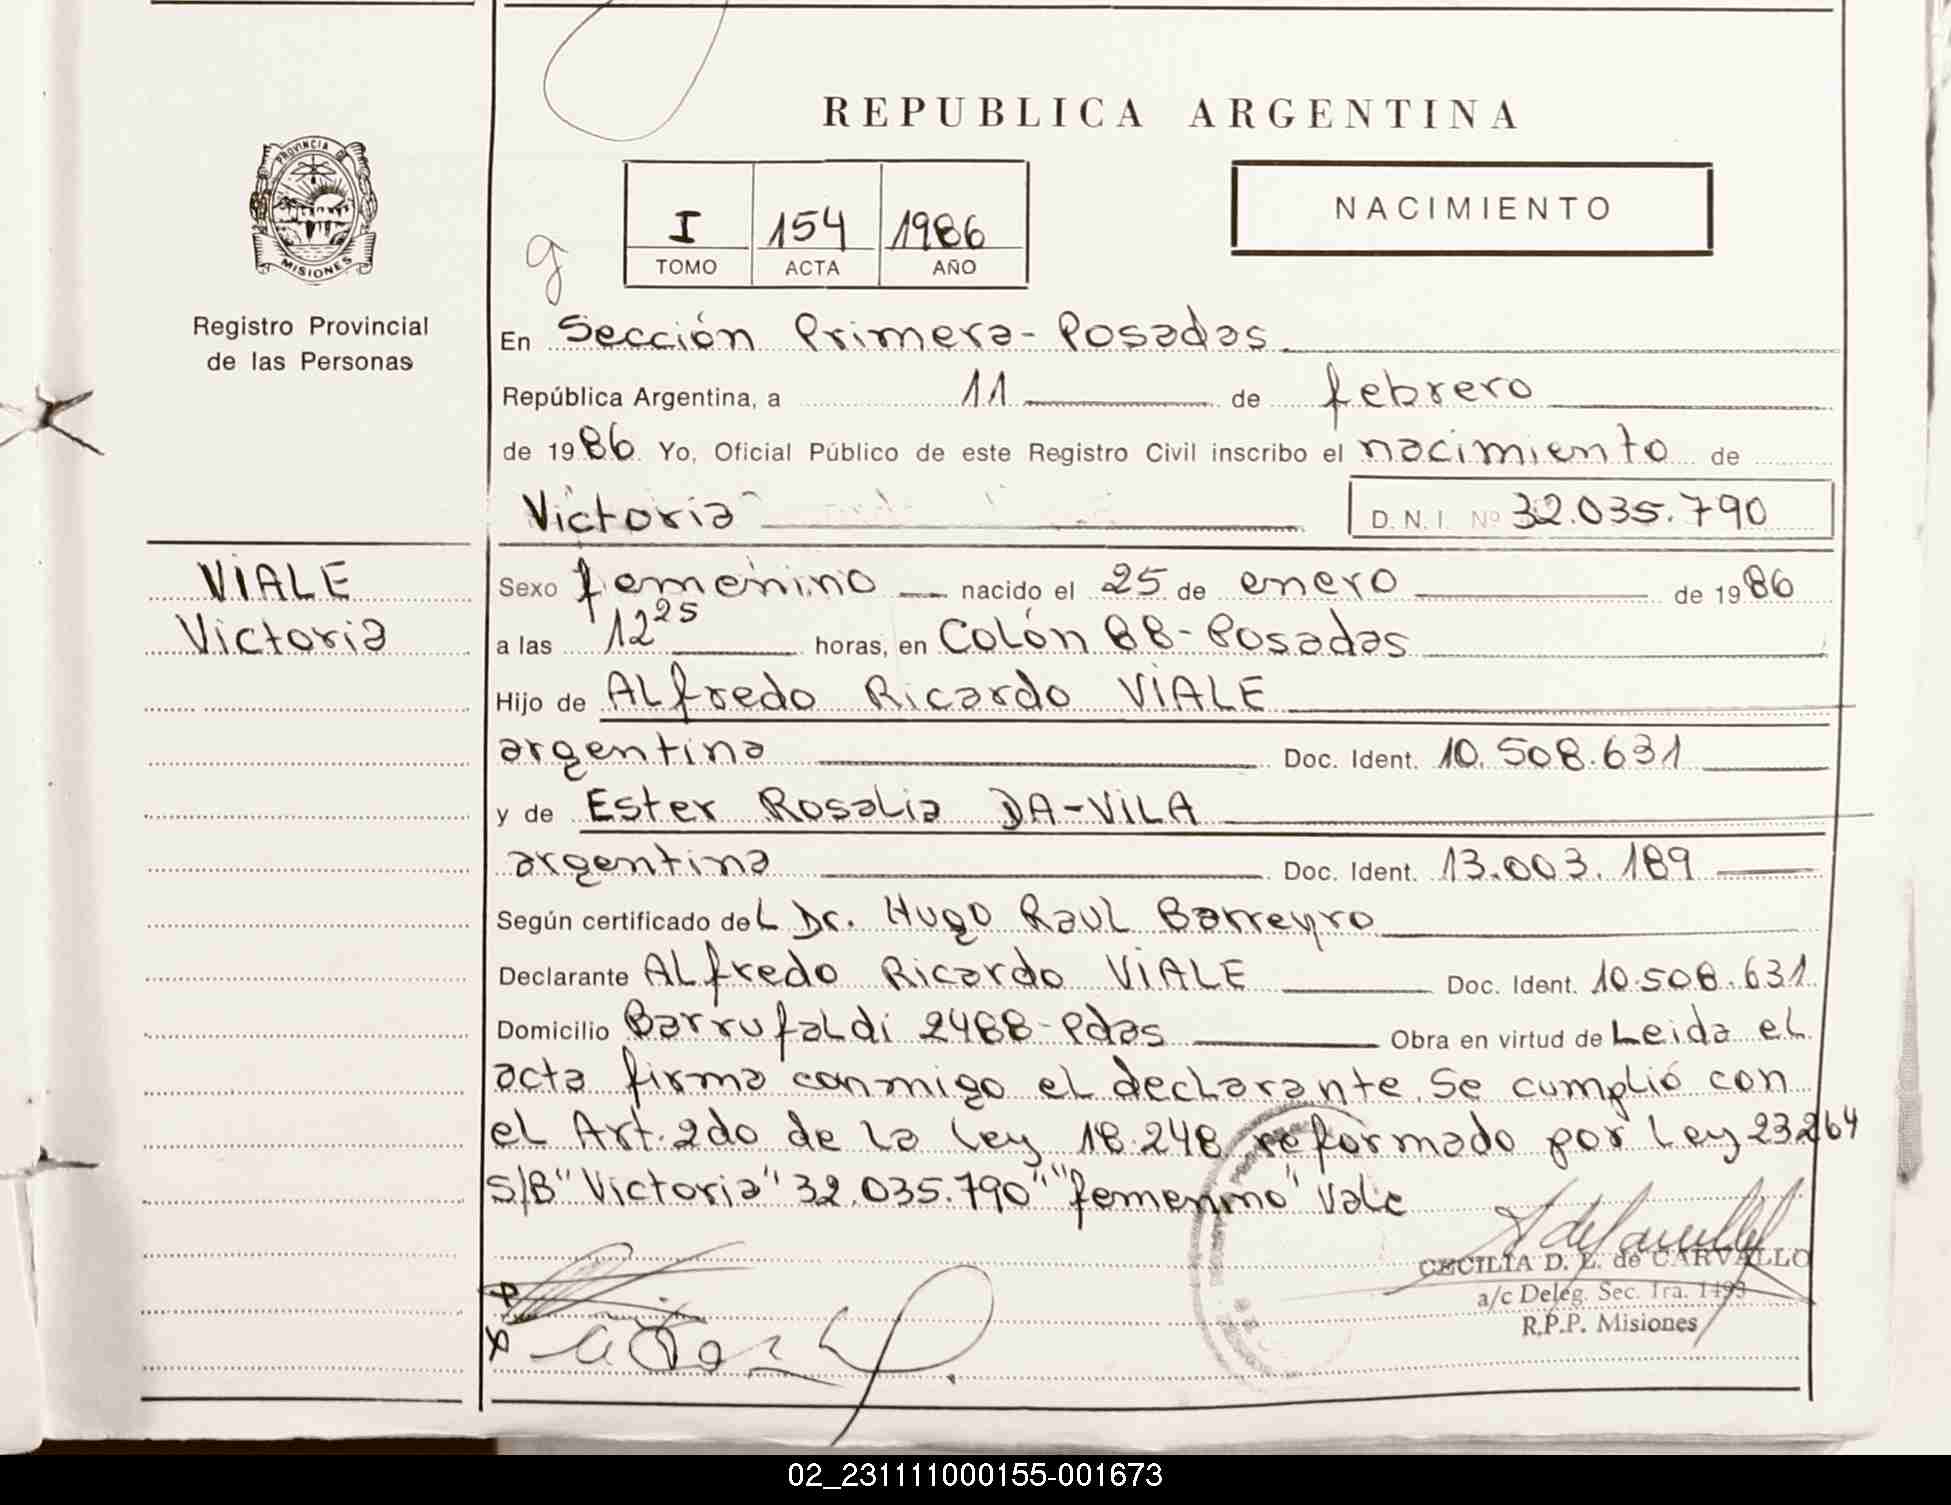 REPUBLICA ARGENTINA
PROVINCIA DE
MISIONES
Registro Provincial
de las Personas
I 154 1986
TOMO ACTA AÑO
NACIMIENTO
g
En Sección Primera - Posadas
República Argentina, a 11 de febrero
de 1986 Yo, Oficial Público de este Registro Civil inscribo el nacimiento de
Victoria D. N. I. Nº 32.035.790
VIALE
Victoria
Sexo femenino nacido el 25 de enero de 1986
a las 12 25 horas, en Colón 88 - Posadas
Hijo de Alfredo Ricardo VIALE
argentina Doc. Ident. 10.508.631
y de Ester Rosalia DA-VILA
argentina Doc. Ident. 13.003.189
Según certificado del Dr. Hugo Raul Barreyro
Declarante Alfredo Ricardo VIALE Doc. Ident. 10.508.631
Domicilio Barrufaldi 2488 - Pdas Obra en virtud de Leida el
acta firma conmigo el declarante. Se cumplió con
el Art. 2do de la Ley 18.248 reformado por Ley 23264
S/B "Victoria" 32.035.790" "femenino" Vale
CECILIA D. L. de CARVALLO
a/c Deleg. Sec. 1ra. 1493
R.P.P. Misiones
02_231111000155-001673